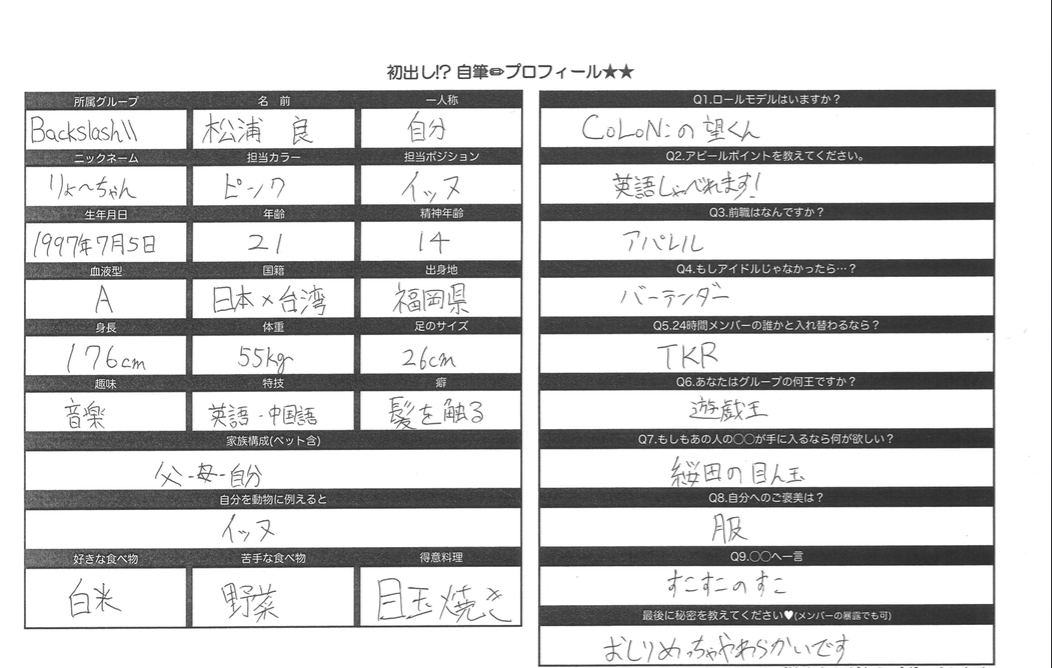 初出し!? 自筆✏プロフィール★★
所属グループ 名 前 一人称
Backslash\\ 松浦 良 自分
ニックネーム 担当カラー 担当ポジション
りょ〜ちゃん ピンク イッヌ
生年月日 年齢 精神年齢
1997年7月5日 21 14
血液型 国籍 出身地
A 日本×台湾 福岡県
身長 体重 足のサイズ
176cm 55kg 26cm
趣味 特技 癖
音楽 英語・中国語 髪を触る
家族構成(ペット含)
父-母-自分
自分を動物に例えると
イッヌ
好きな食べ物 苦手な食べ物 得意料理
白米 野菜 目玉焼き
Q1.ロールモデルはいますか?
CoLoN:の望くん
Q2.アピールポイントを教えてください。
英語しゃべれます!
Q3.前職はなんですか?
アパレル
Q4.もしアイドルじゃなかったら…?
バーテンダー
Q5.24時間メンバーの誰かと入れ替わるなら?
TKR
Q6.あなたはグループの何王ですか?
遊戯王
Q7.もしもあの人の○○が手に入るなら何が欲しい?
桜田の目ん玉
Q8.自分へのご褒美は?
服
Q9.○○へ一言
すこすこのすこ
最後に秘密を教えてください♥(メンバーの暴露でも可)
おしりめっちゃやわらかいです